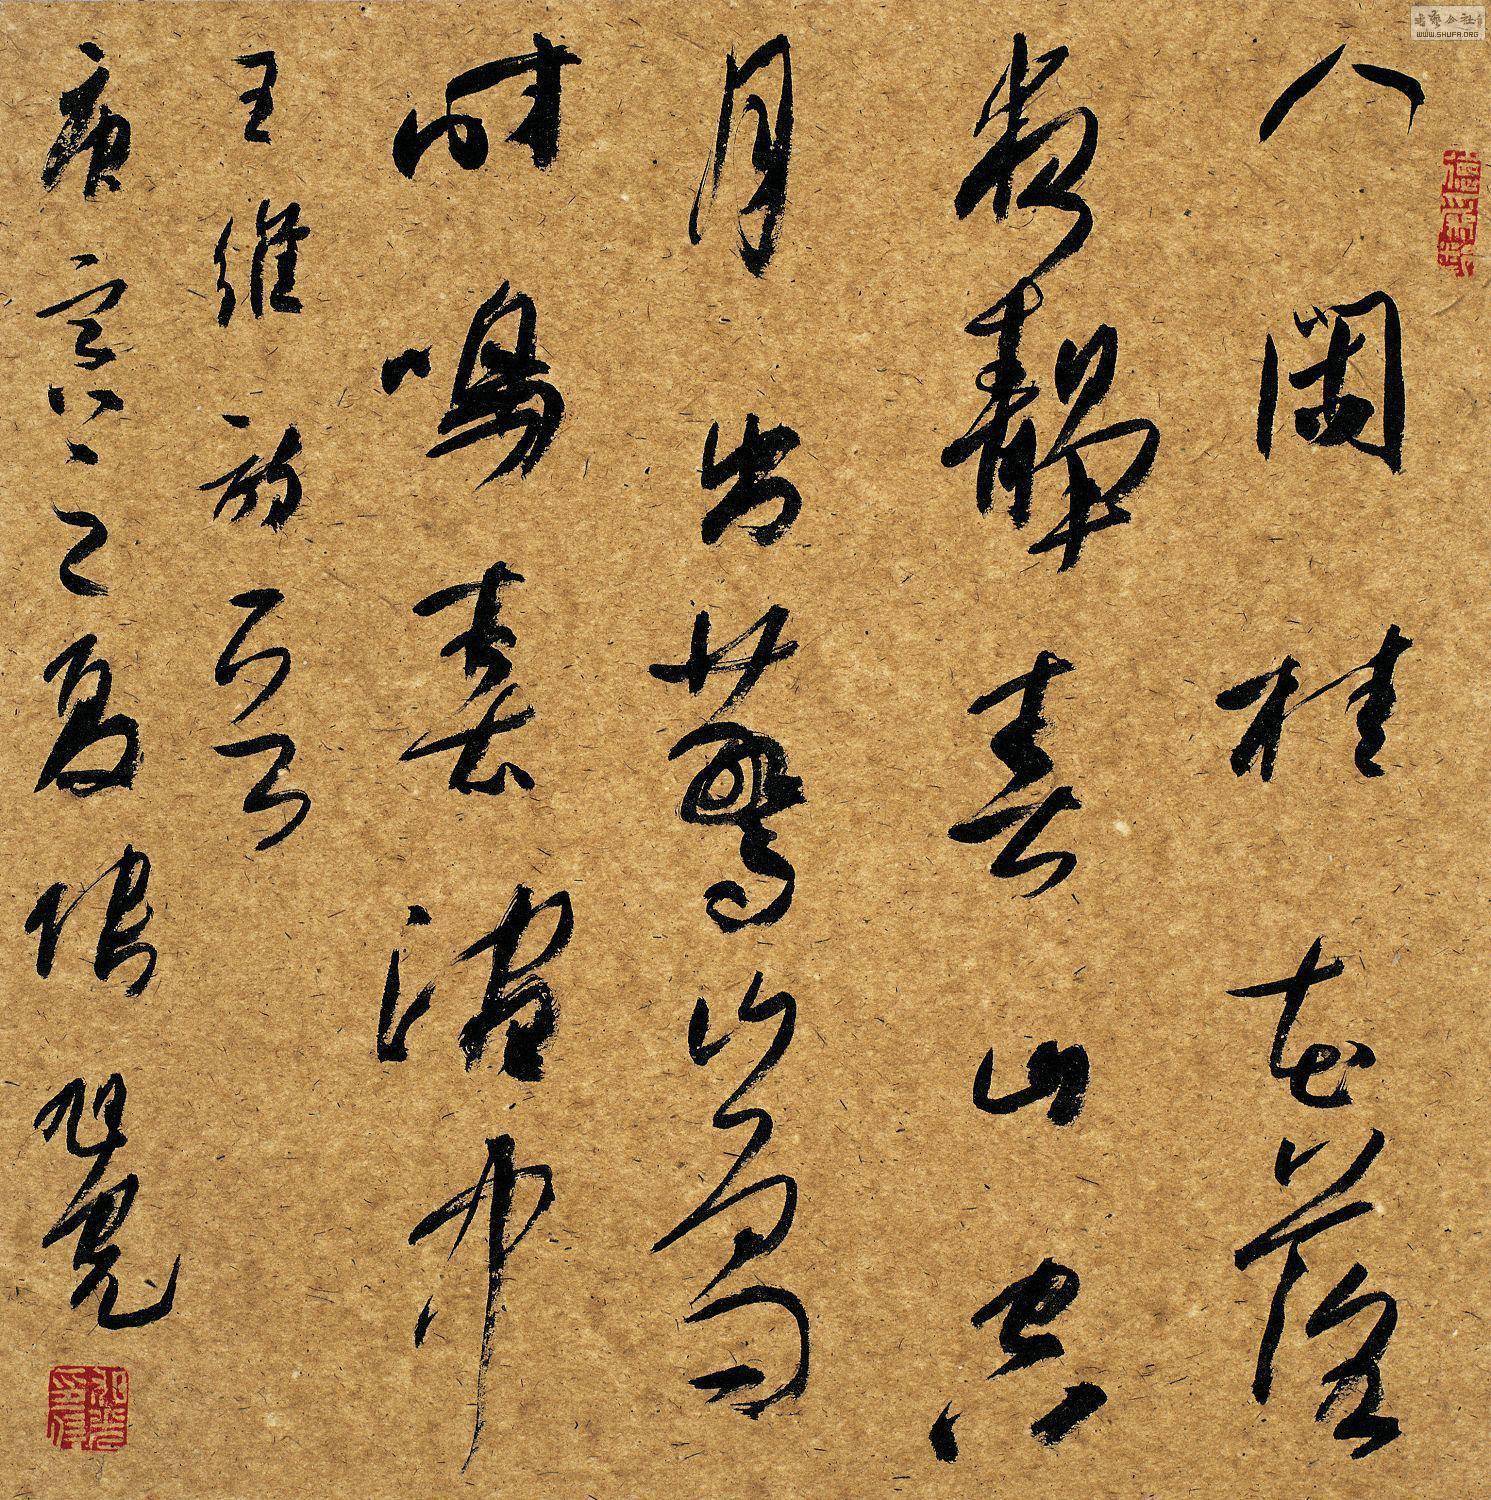 人閑桂花落
夜靜春山空
月出驚山鳥
時鳴春澗中
王維
庚寅之夏張旭光
WWW.SHUFA.ORG